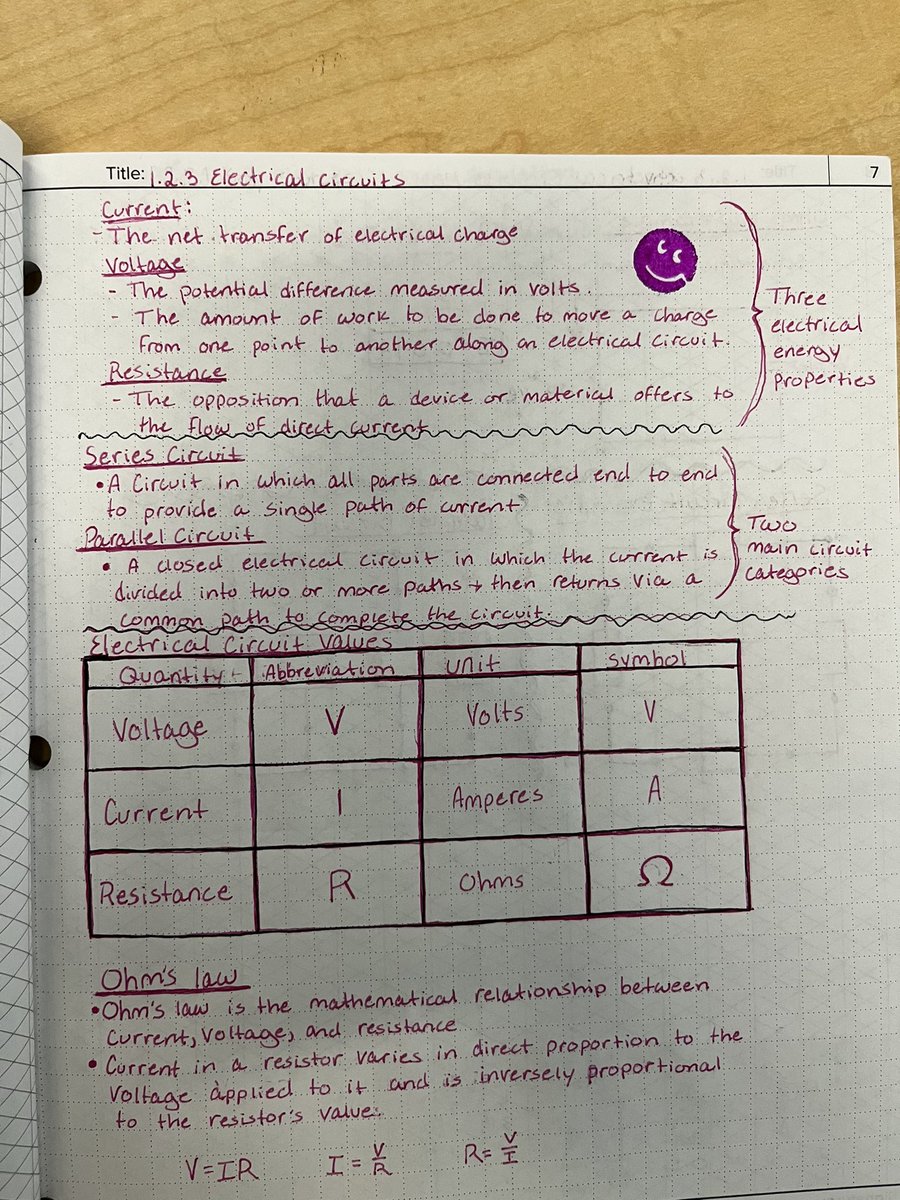 Title: 1.2.3 Electrical Circuits
7
Current:
- The net transfer of electrical charge
Voltage
- The potential difference measured in volts.
- The amount of work to be done to move a charge
from one point to another along an electrical circuit.
Resistance
- The opposition that a device or material offers to
the flow of direct current
Three
electrical
energy
properties
Series Circuit
• A Circuit in which all parts are connected end to end
to provide a single path of current
Parallel Circuit
• A closed electrical circuit in which the current is
divided into two or more paths + then returns via a
common path to complete the circuit.
Two
main circuit
categories
Electrical Circuit Values
Quantity Abbreviation Unit Symbol
Voltage V Volts V
Current I Amperes A
Resistance R Ohms Ω
Ohm's law
• Ohm's law is the mathematical relationship between
Current, Voltage, and resistance
• Current in a resistor varies in direct proportion to the
Voltage applied to it and is inversely proportional
to the resistor's value.
V=IR I=V/R R=V/I